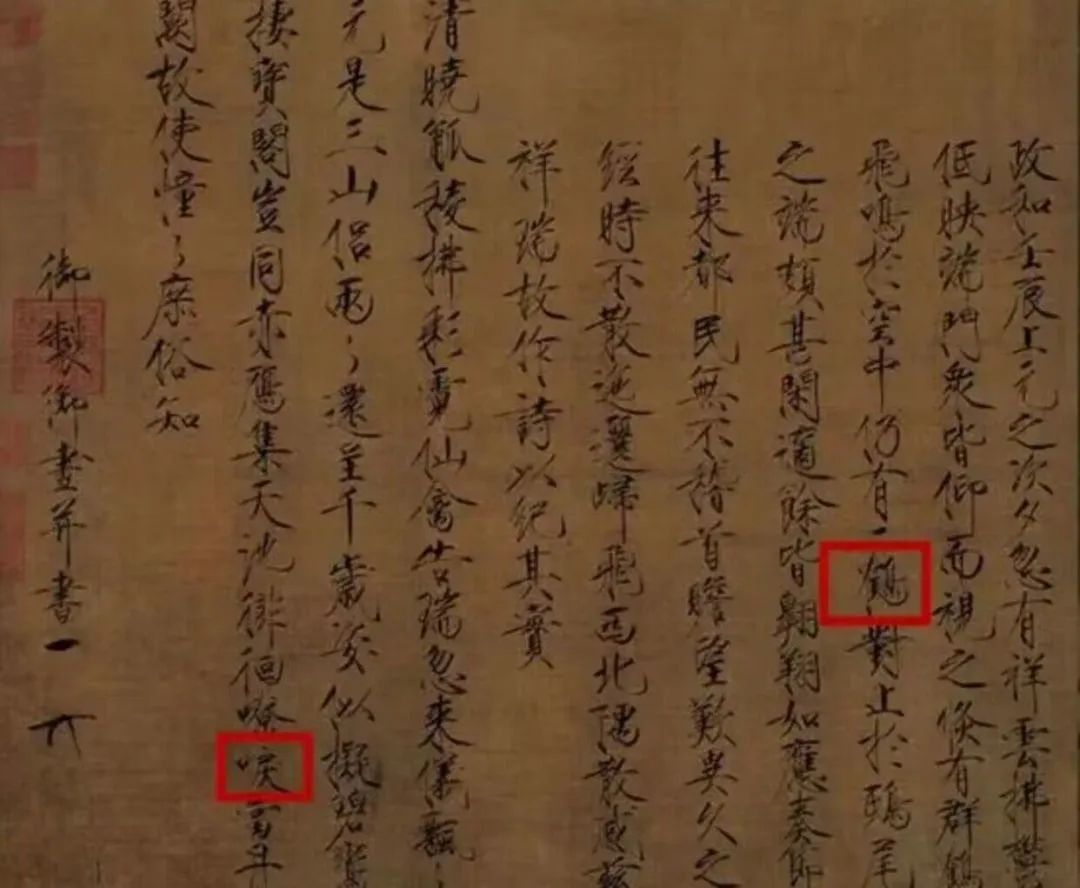 政和壬辰上元之次夕忽有祥雲拂鬱
低映端門衆皆仰而視之倐有群鶴
飛鳴於空中仍有一鶴對止於鴟尾
之端頗甚閑適餘皆翱翔如應奏節
往来都民無不稽首瞻望歎異久之
經時不散迤邐歸飛西北隅散感茲
祥瑞故作詩以紀其實
清曉觚稜拂彩霓仙禽告瑞忽来儀飄〻
元是三山侣兩〻還呈千歲姿似擬碧鸞
棲寶閣豈同赤鴈集天池徘徊嘹唳當丹
闕故使憧〻庶俗知
御製御畫并書